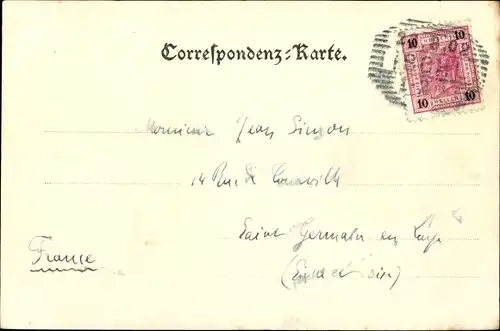 Correspondenz-Karte.
10 10
10 10
Monsieur Jean Simon
14 Rue de
Saint Germain en Laye
(Seine et Oise)
France